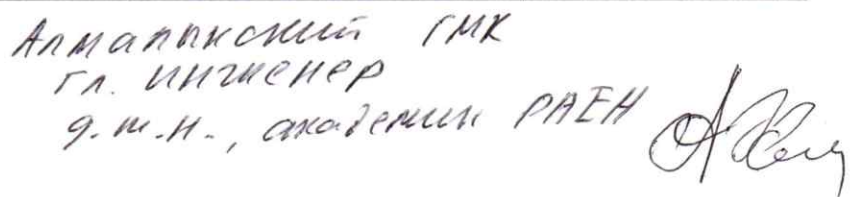 Алмалыкский ГМК
гл. инженер
д.т.н., академик РАЕН